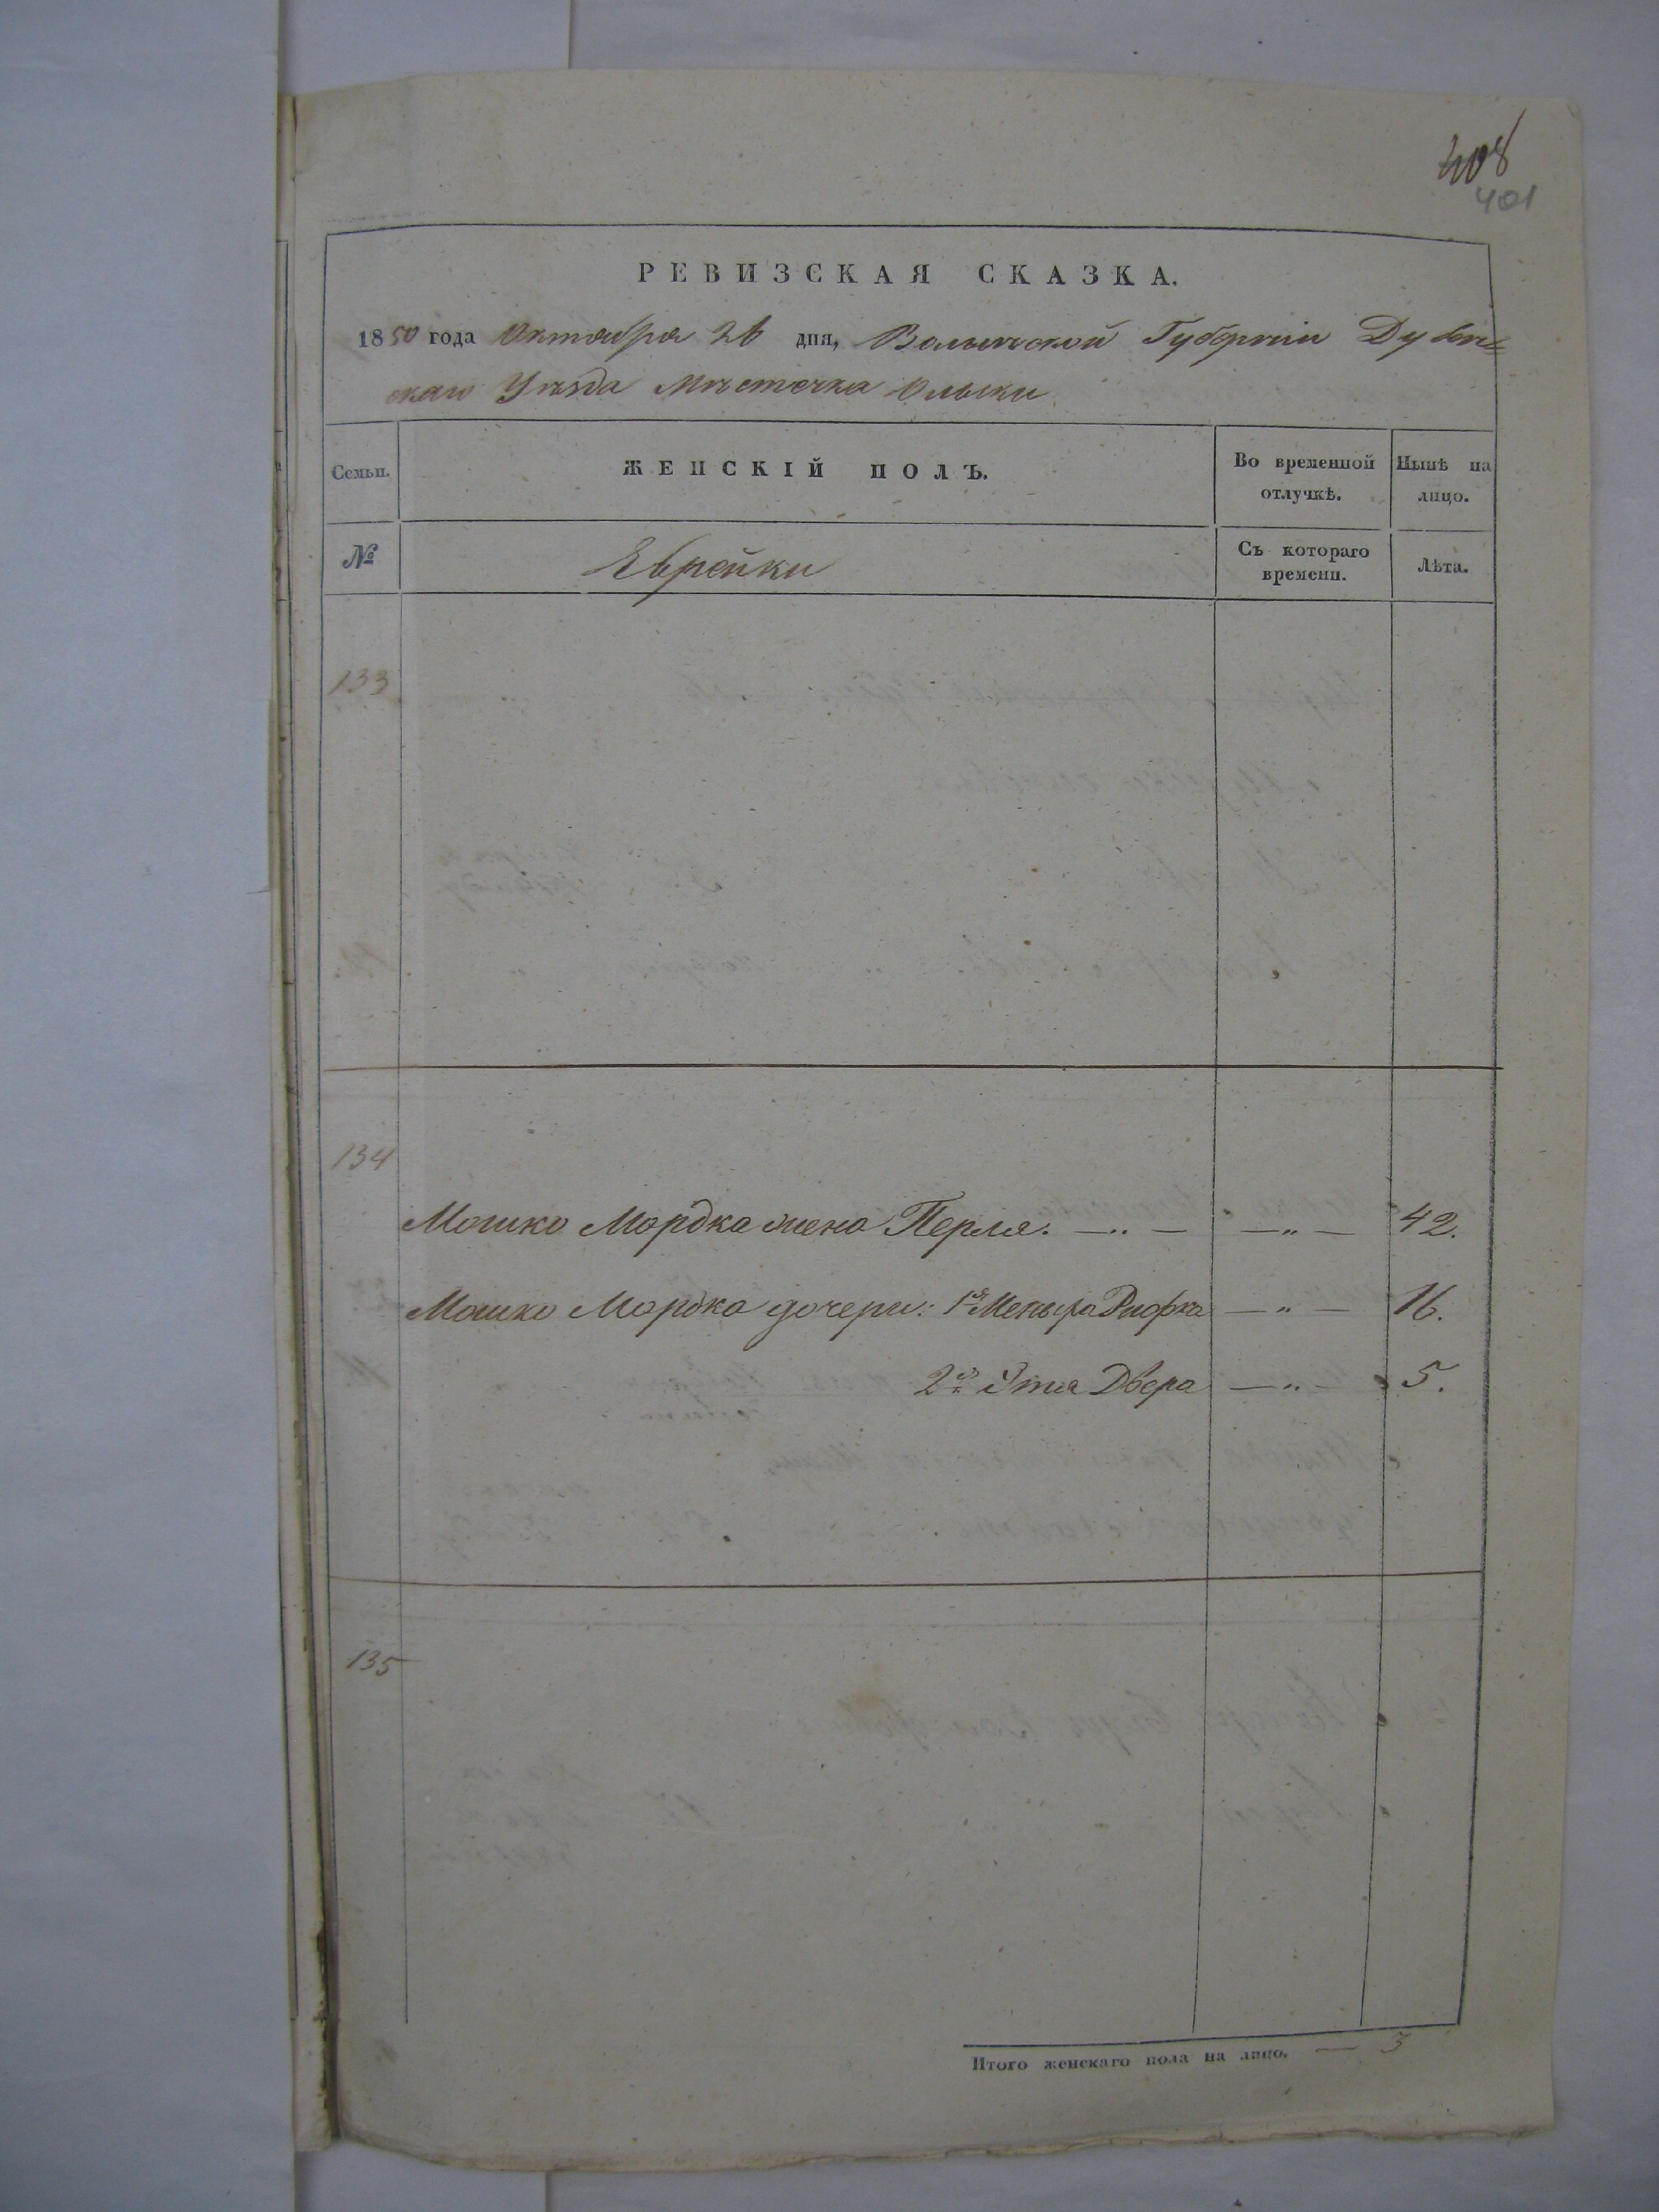 408
401
РЕВИЗСКАЯ СКАЗКА.
1850 года Октября 26 дня, Волынской Губерніи Дубен=
скаго Уѣзда Мѣстечка Олыки
Семьи. ЖЕНСКІЙ ПОЛЪ. Во временной отлучкѣ. Нынѣ на лицо.
№ Еврейки Съ котораго времени. Лѣта.
133
134
Мошко Мордка жена Перля. — „ — — „ — 42.
Мошко Мордка дочери: 1я Меньха Рифка — „ — 16.
2я Этя Двера — „ — 5.
135
Итого женскаго пола на лицо. — 3